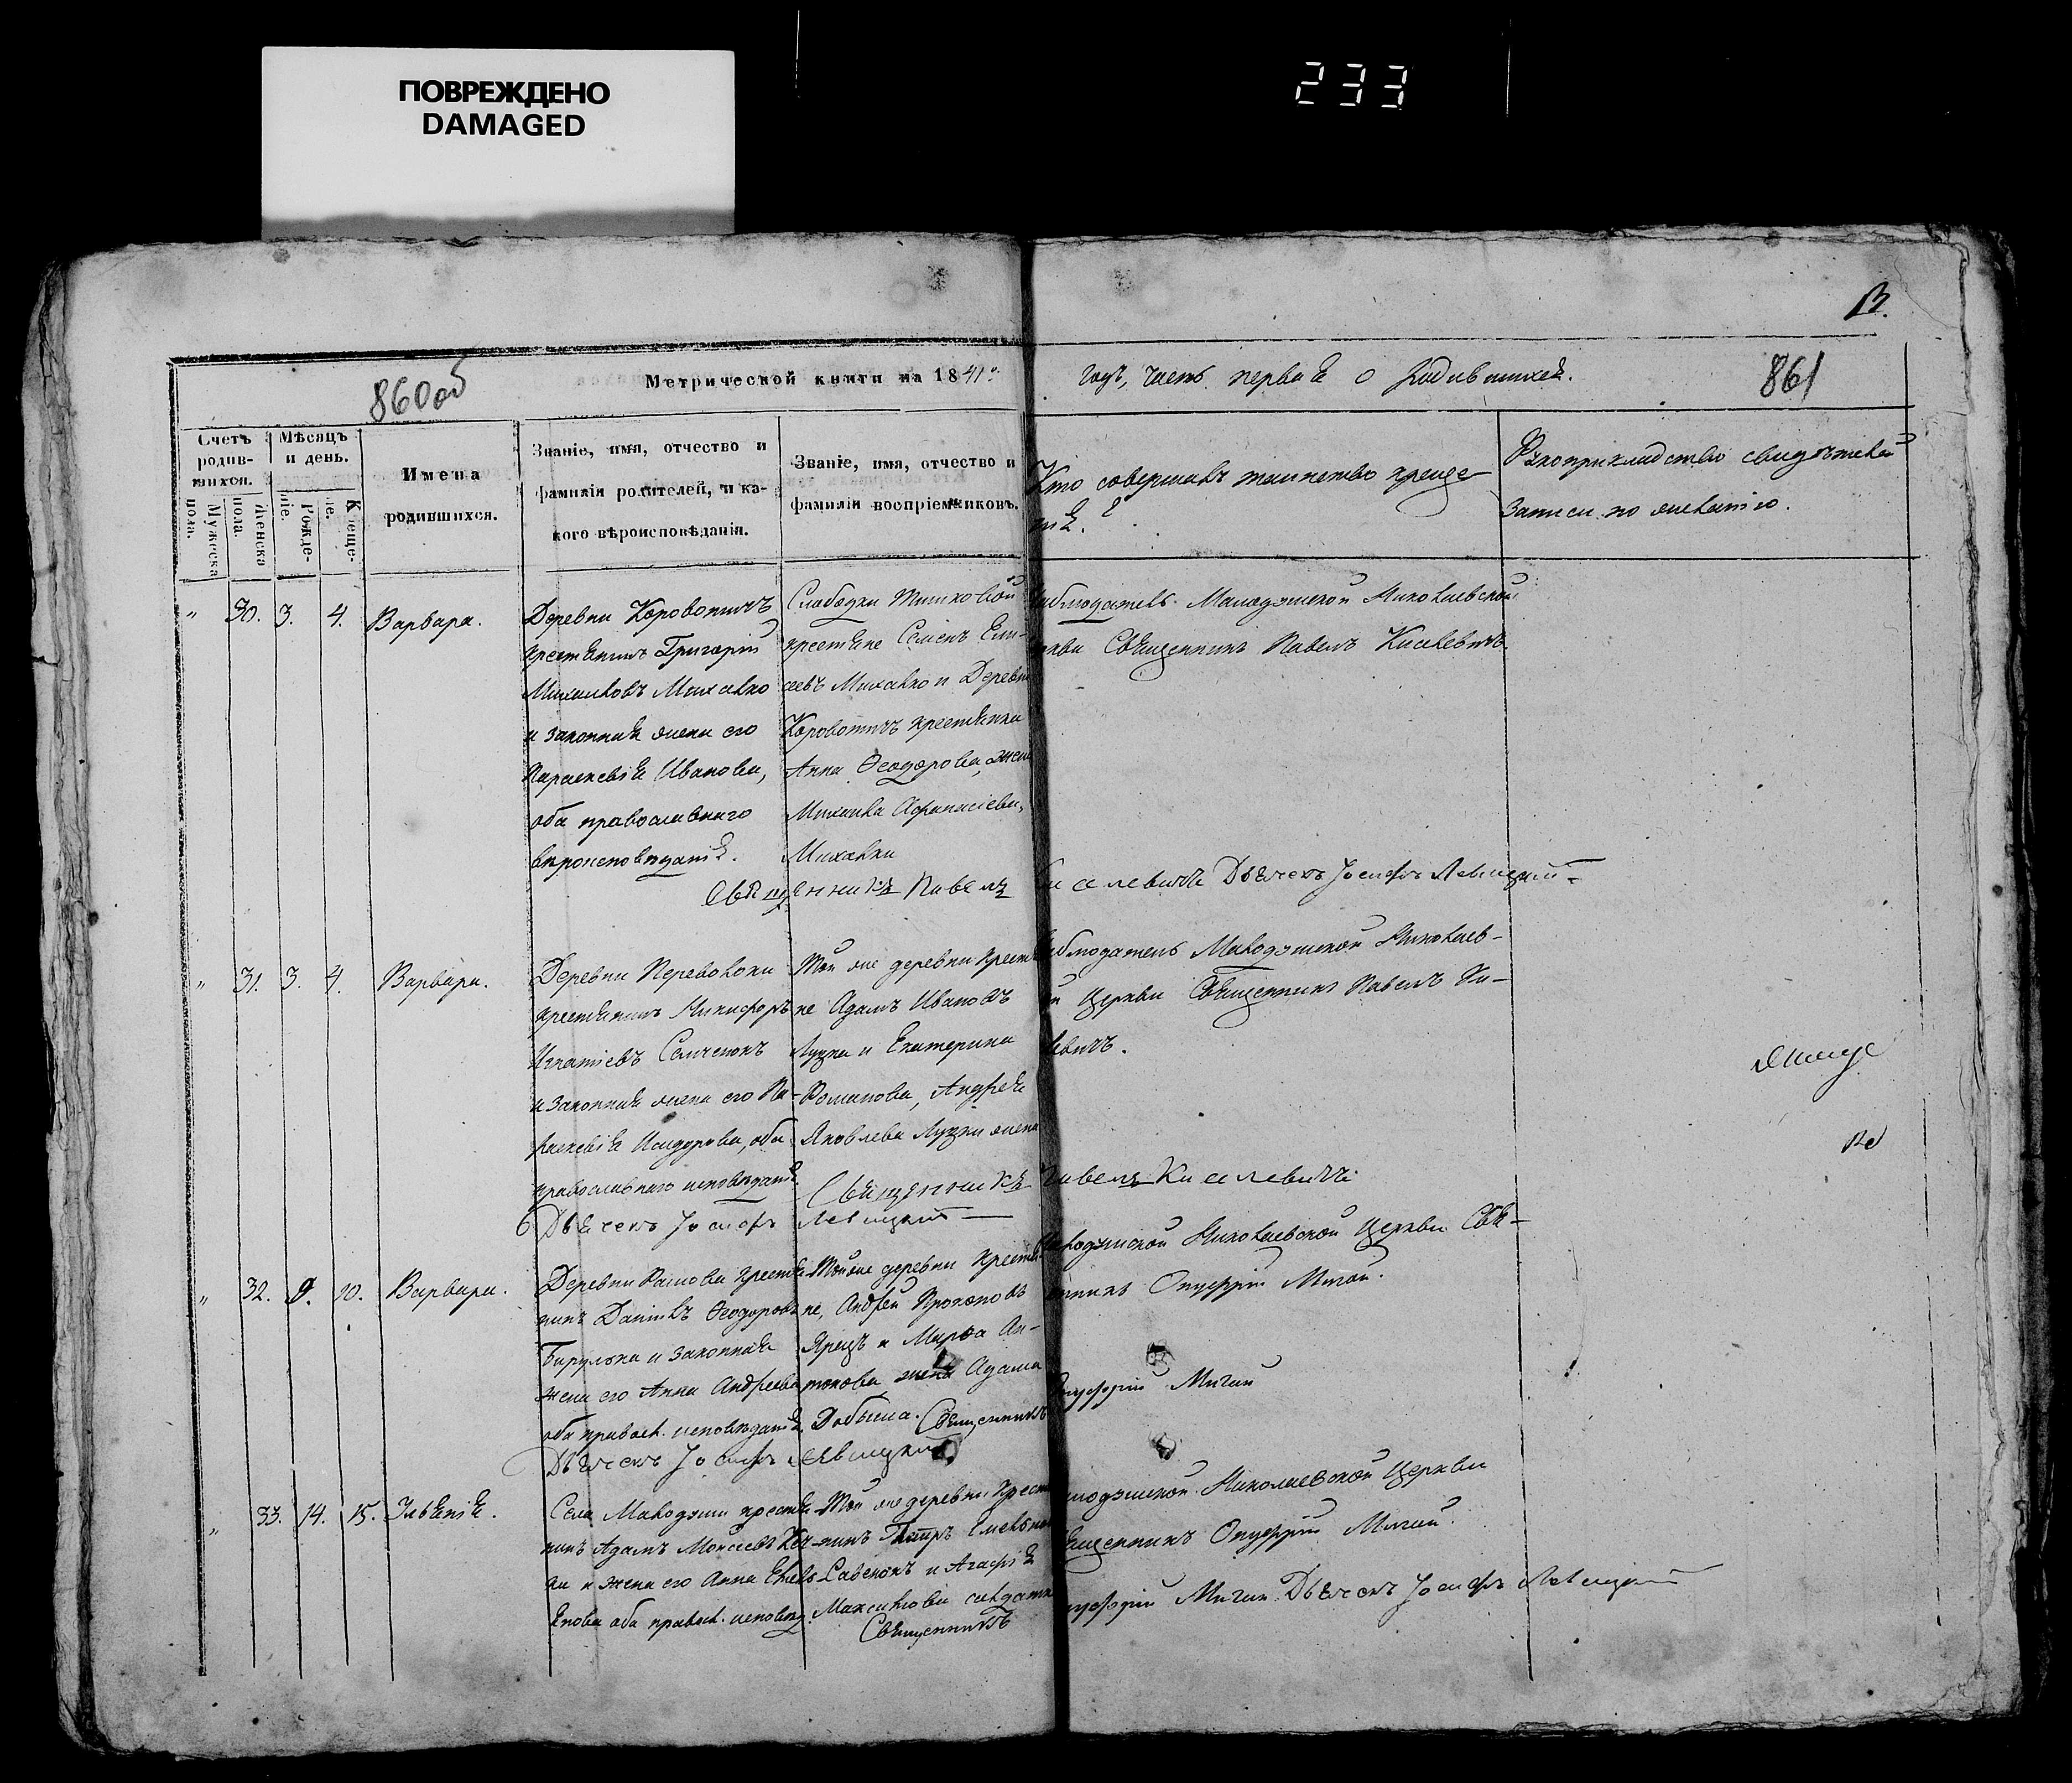 ПОВРЕЖДЕНО
DAMAGED
233
13.
860об
Метрической книги на 1841й
годъ, часть первая о родившихся.
861
Счетъ родив-шихся.
Мужеска пола.
Женска пола.
Мѣсяцъ и день.
Рожде-нія.
Креще-нія.
Имена
родившихся.
Званіе, имя, отчество и
фамилія родителей, и ка-
кого вѣроисповѣданія.
Званіе, имя, отчество и
фамилія воспріемниковъ.
Кто совершалъ таинство креще-
нія?
Рукоприкладство свидѣтелей
записи по желанію.
" 30. 3. 4. Варвара.
Деревни Коровотичъ
крестьянинъ Григорій
Михаиловъ Михалко
и законная жена его
Параскевія Иванова,
оба православнаго
вѣроисповѣданія.
Слободки
крестьяне Семенъ Ели-
сеевъ Михалко и Деревни
Коровотичъ крестьянка
Анна Ѳеодорова, жена
Михаила Афанасіева,
Михалки
Наблюдатель Малодушской Николаевской
церкви Священникъ Павелъ Киселевичъ.
Священникъ Павелъ Киселевичъ Дьячекъ Іосифъ Левицкій
" 31. 3. 4. Варвара.
Деревни Переволоки
крестьянинъ Никифоръ
Игнатіевъ
и законная жена его Па-
раскевія Исидорова, оба
православнаго исповѣданія
Той же деревни крестья-
не Адамъ Ивановъ
Луцка и Екатерина
Романова, Андрея
Яковлева Луцки жена
Наблюдатель Малодушской Николаев-
ской Церкви Священникъ Павелъ Ки-
селевичъ.
Священникъ Павелъ Киселевичъ
Дьячекъ Іосифъ Левицкій
" 32. 9. 10. Варвара.
Деревни крестья-
нинъ Даніилъ Ѳеодоровъ
Бирулька и законная
жена его Анна Андреева
оба правосл. исповѣданія.
Той же деревни крестья-
не, Андрей Прокоповъ
Ярецъ и Марѳа Ан-
тонова жена Адама
Добыша. Священникъ
Малодушской Николаевской Церкви Свя-
щенникъ Онуфрій Мигай.
Онуфрій Мигай
Дьячекъ Іосифъ Левицкій
" 33. 14. 15. Іуліанія.
Села Малодуши крестья-
нинъ Адамъ Моисеевъ
и жена его Анна Емель-
янова оба правосл. исповѣд.
Той же деревни крестья-
нинъ Петръ Емельяновъ
Савенокъ и Агафія
Максимова солдатка
Малодушской Николаевской Церкви
Священникъ Онуфрій Мигай.
Священникъ Онуфрій Мигай Дьячекъ Іосифъ Левицкій